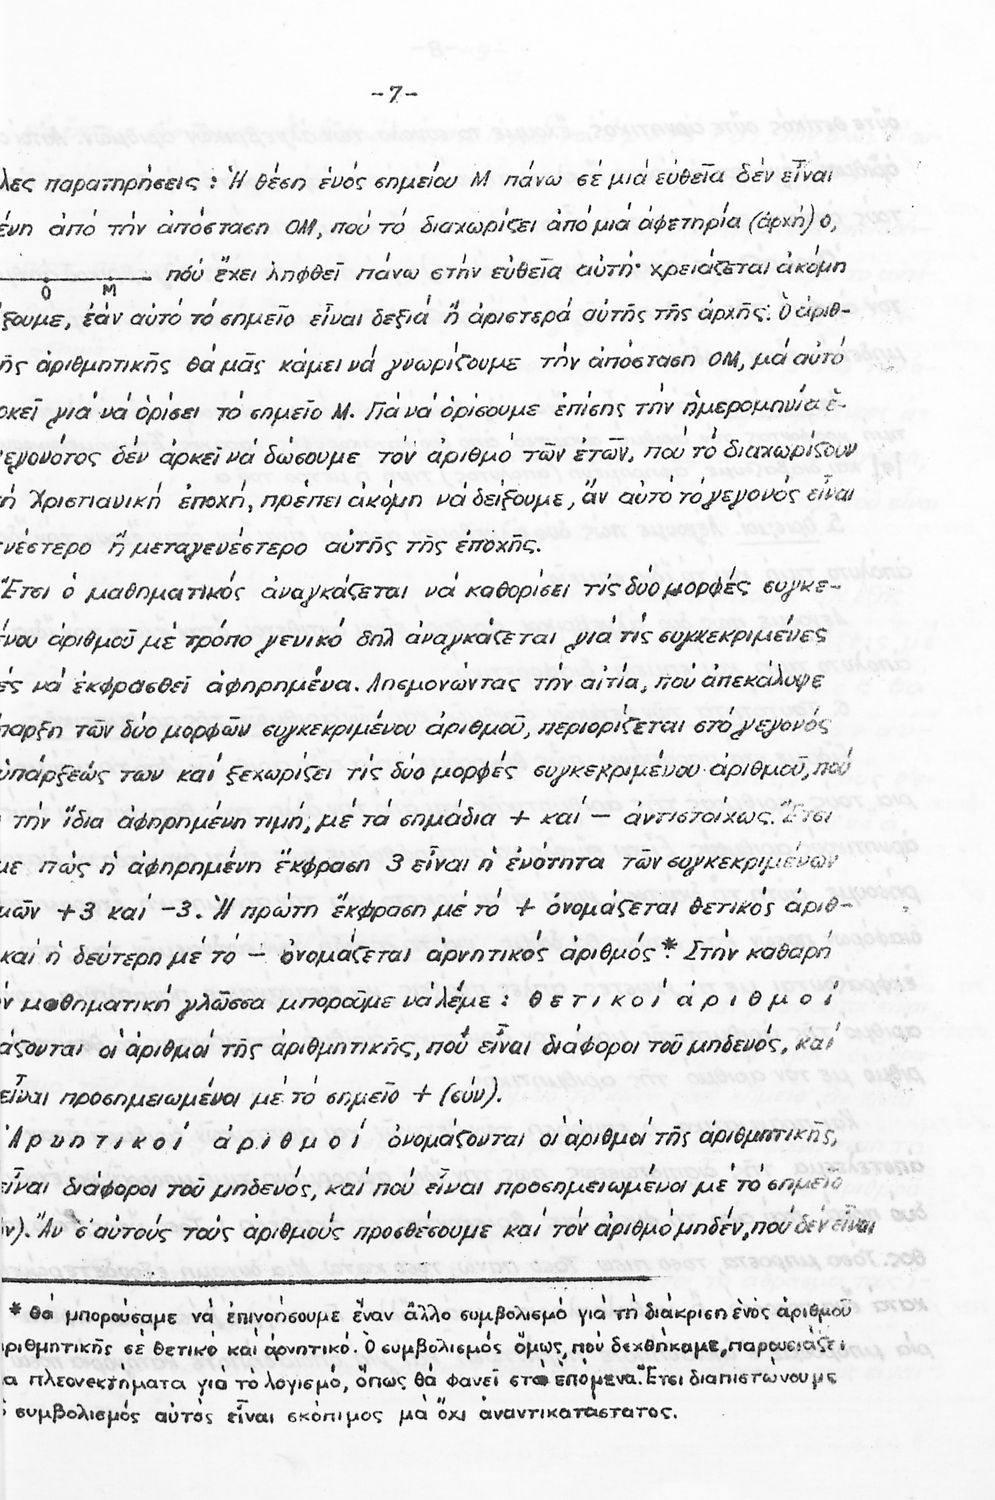 -7-
λες παρατηρήσεις : Ἡ θέση ἑνός σημείου Μ πάνω σέ μιά εὐθεῖα δέν εἶναι
ένη ἀπό τήν ἀπόσταση ΟΜ, πού τό διαχωρίζει ἀπό μιά ἀφετηρία (ἀρχή) Ο,
πού ἔχει ληφθεῖ πάνω στήν εὐθεῖα αὐτή· χρειάζεται ἀκόμη
Ο Μ
ξουμε, ἐάν αὐτό τό σημεῖο εἶναι δεξιά ἤ ἀριστερά αὐτῆς τῆς ἀρχῆς. Ὁ ἀριθ-
ῆς ἀριθμητικῆς θά μᾶς κάμει νά γνωρίζουμε τήν ἀπόσταση ΟΜ, μά αὐτό
ρκεῖ γιά νά ὁρίσει τό σημεῖο Μ. Γιά νά ὁρίσουμε ἐπίσης τήν ἡμερομηνία ἑ-
γεγονότος δέν ἀρκεῖ νά δώσουμε τόν ἀριθμό τῶν ἐτῶν, πού τό διαχωρίζουν
ή Χριστιανική ἐποχή, πρέπει ἀκόμη νά δείξουμε, ἄν αὐτό τό γεγονός εἶναι
ενέστερο ἤ μεταγενέστερο αὐτῆς τῆς ἐποχῆς.
Ἔτσι ὁ μαθηματικός ἀναγκάζεται νά καθορίσει τίς δύο μορφές συγκε-
ένου ἀριθμοῦ μέ τρόπο γενικό δηλ ἀναγκάζεται γιά τίς συγκεκριμένες
ές νά ἐκφρασθεῖ ἀφηρημένα. Λησμονώντας τήν αἰτία, πού ἀπεκάλυψε
παρξη τῶν δύο μορφῶν συγκεκριμένου ἀριθμοῦ, περιορίζεται στό γεγονός
ὑπάρξεώς των καί ξεχωρίζει τίς δύο μορφές συγκεκριμένου ἀριθμοῦ, πού
τήν ἴδια ἀφηρημένη τιμή, μέ τά σημάδια + καί − ἀντιστοίχως. Ἔτσι
με πώς ἡ ἀφηρημένη ἔκφραση 3 εἶναι ἡ ἑνότητα τῶν συγκεκριμένων
μῶν +3 καί −3. Ἡ πρώτη ἔκφραση μέ τό + ὀνομάζεται θετικός ἀριθ-
καί ἡ δεύτερη μέ τό − ὀνομάζεται ἀρνητικός ἀριθμός*. Στήν καθαρή
ν μαθηματική γλῶσσα μποροῦμε νά λέμε : θ ε τ ι κ ο ί ἀ ρ ι θ μ ο ί
άζονται οἱ ἀριθμοί τῆς ἀριθμητικῆς, πού εἶναι διάφοροι τοῦ μηδενός, καί
εἶναι προσημειωμένοι μέ τό σημεῖο + (σύν).
Ἀ ρ ν η τ ι κ ο ί ἀ ρ ι θ μ ο ί ὀνομάζονται οἱ ἀριθμοί τῆς ἀριθμητικῆς,
εἶναι διάφοροι τοῦ μηδενός, καί πού εἶναι προσημειωμένοι μέ τό σημεῖο
ν). Ἄν σ' αὐτούς τούς ἀριθμούς προσθέσουμε καί τόν ἀριθμό μηδέν, πού δέν εἶναι
* Θά μπορούσαμε νά ἐπινοήσουμε ἕναν ἄλλο συμβολισμό γιά τή διάκριση ἑνός ἀριθμοῦ
ριθμητικῆς σέ θετικό καί ἀρνητικό. Ὁ συμβολισμός ὅμως, πού δεχθήκαμε, παρουσιάζει
α πλεονεκτήματα γιά τό λογισμό, ὅπως θά φανεῖ στά ἑπόμενα. Ἔτσι διαπιστώνουμε
συμβολισμός αὐτός εἶναι σκόπιμος μά ὄχι ἀναντικατάστατος.